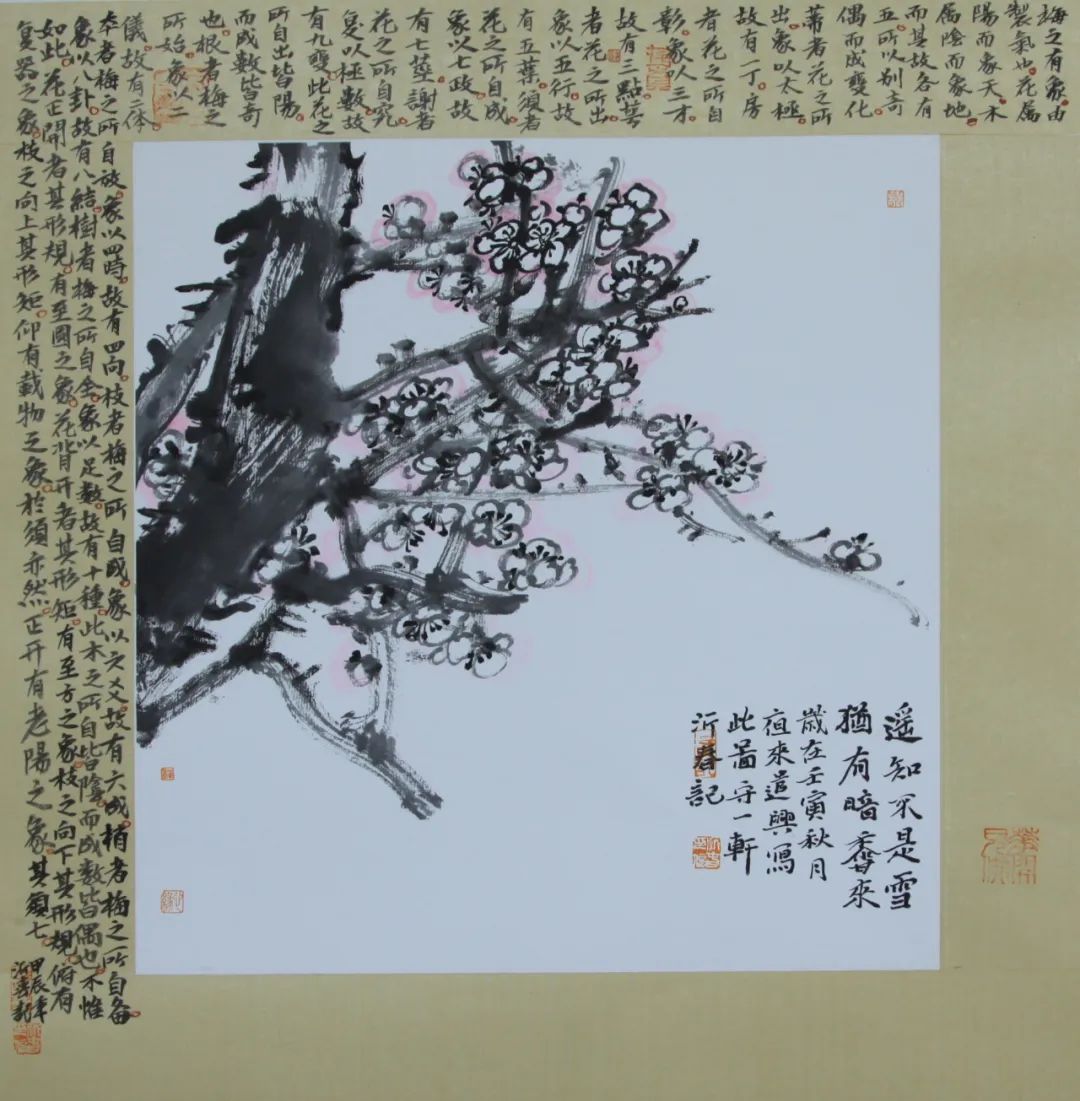 梅之有象由
製氣也花属
陽而象天木
属陰而象地
而其故各有
五所以别奇
偶而成變化
蒂者花之所
出象以太極
故有一丁房
者花之所自
彰象以三才
故有三點萼
者花之所出
象以五行故
有五葉須者
花之所自成
象以七政故
有七莖謝者
花之所自究
复以極數故
有九變此花之
所自出皆陽
而成數皆奇
也根者梅之
所始象以二
儀故有二体
本者梅之所自放象以四時故有四向枝者梅之所自成象以六爻故有六成梢者梅之所自备
象以八卦故有八結樹者梅之所自全象以足數故有十種此木之所自皆陰而成數皆偶也不惟
如此花正開者其形規有至圓之象花背开者其形矩有至方之象枝之向下其形規俯有
复器之象枝之向上其形矩仰有載物之象於須亦然正开有老陽之象其須七
甲辰年
沂春記
遥知不是雪
猶有暗香來
歲在壬寅秋月
夜來遣興寫
此圖守一軒
沂春記